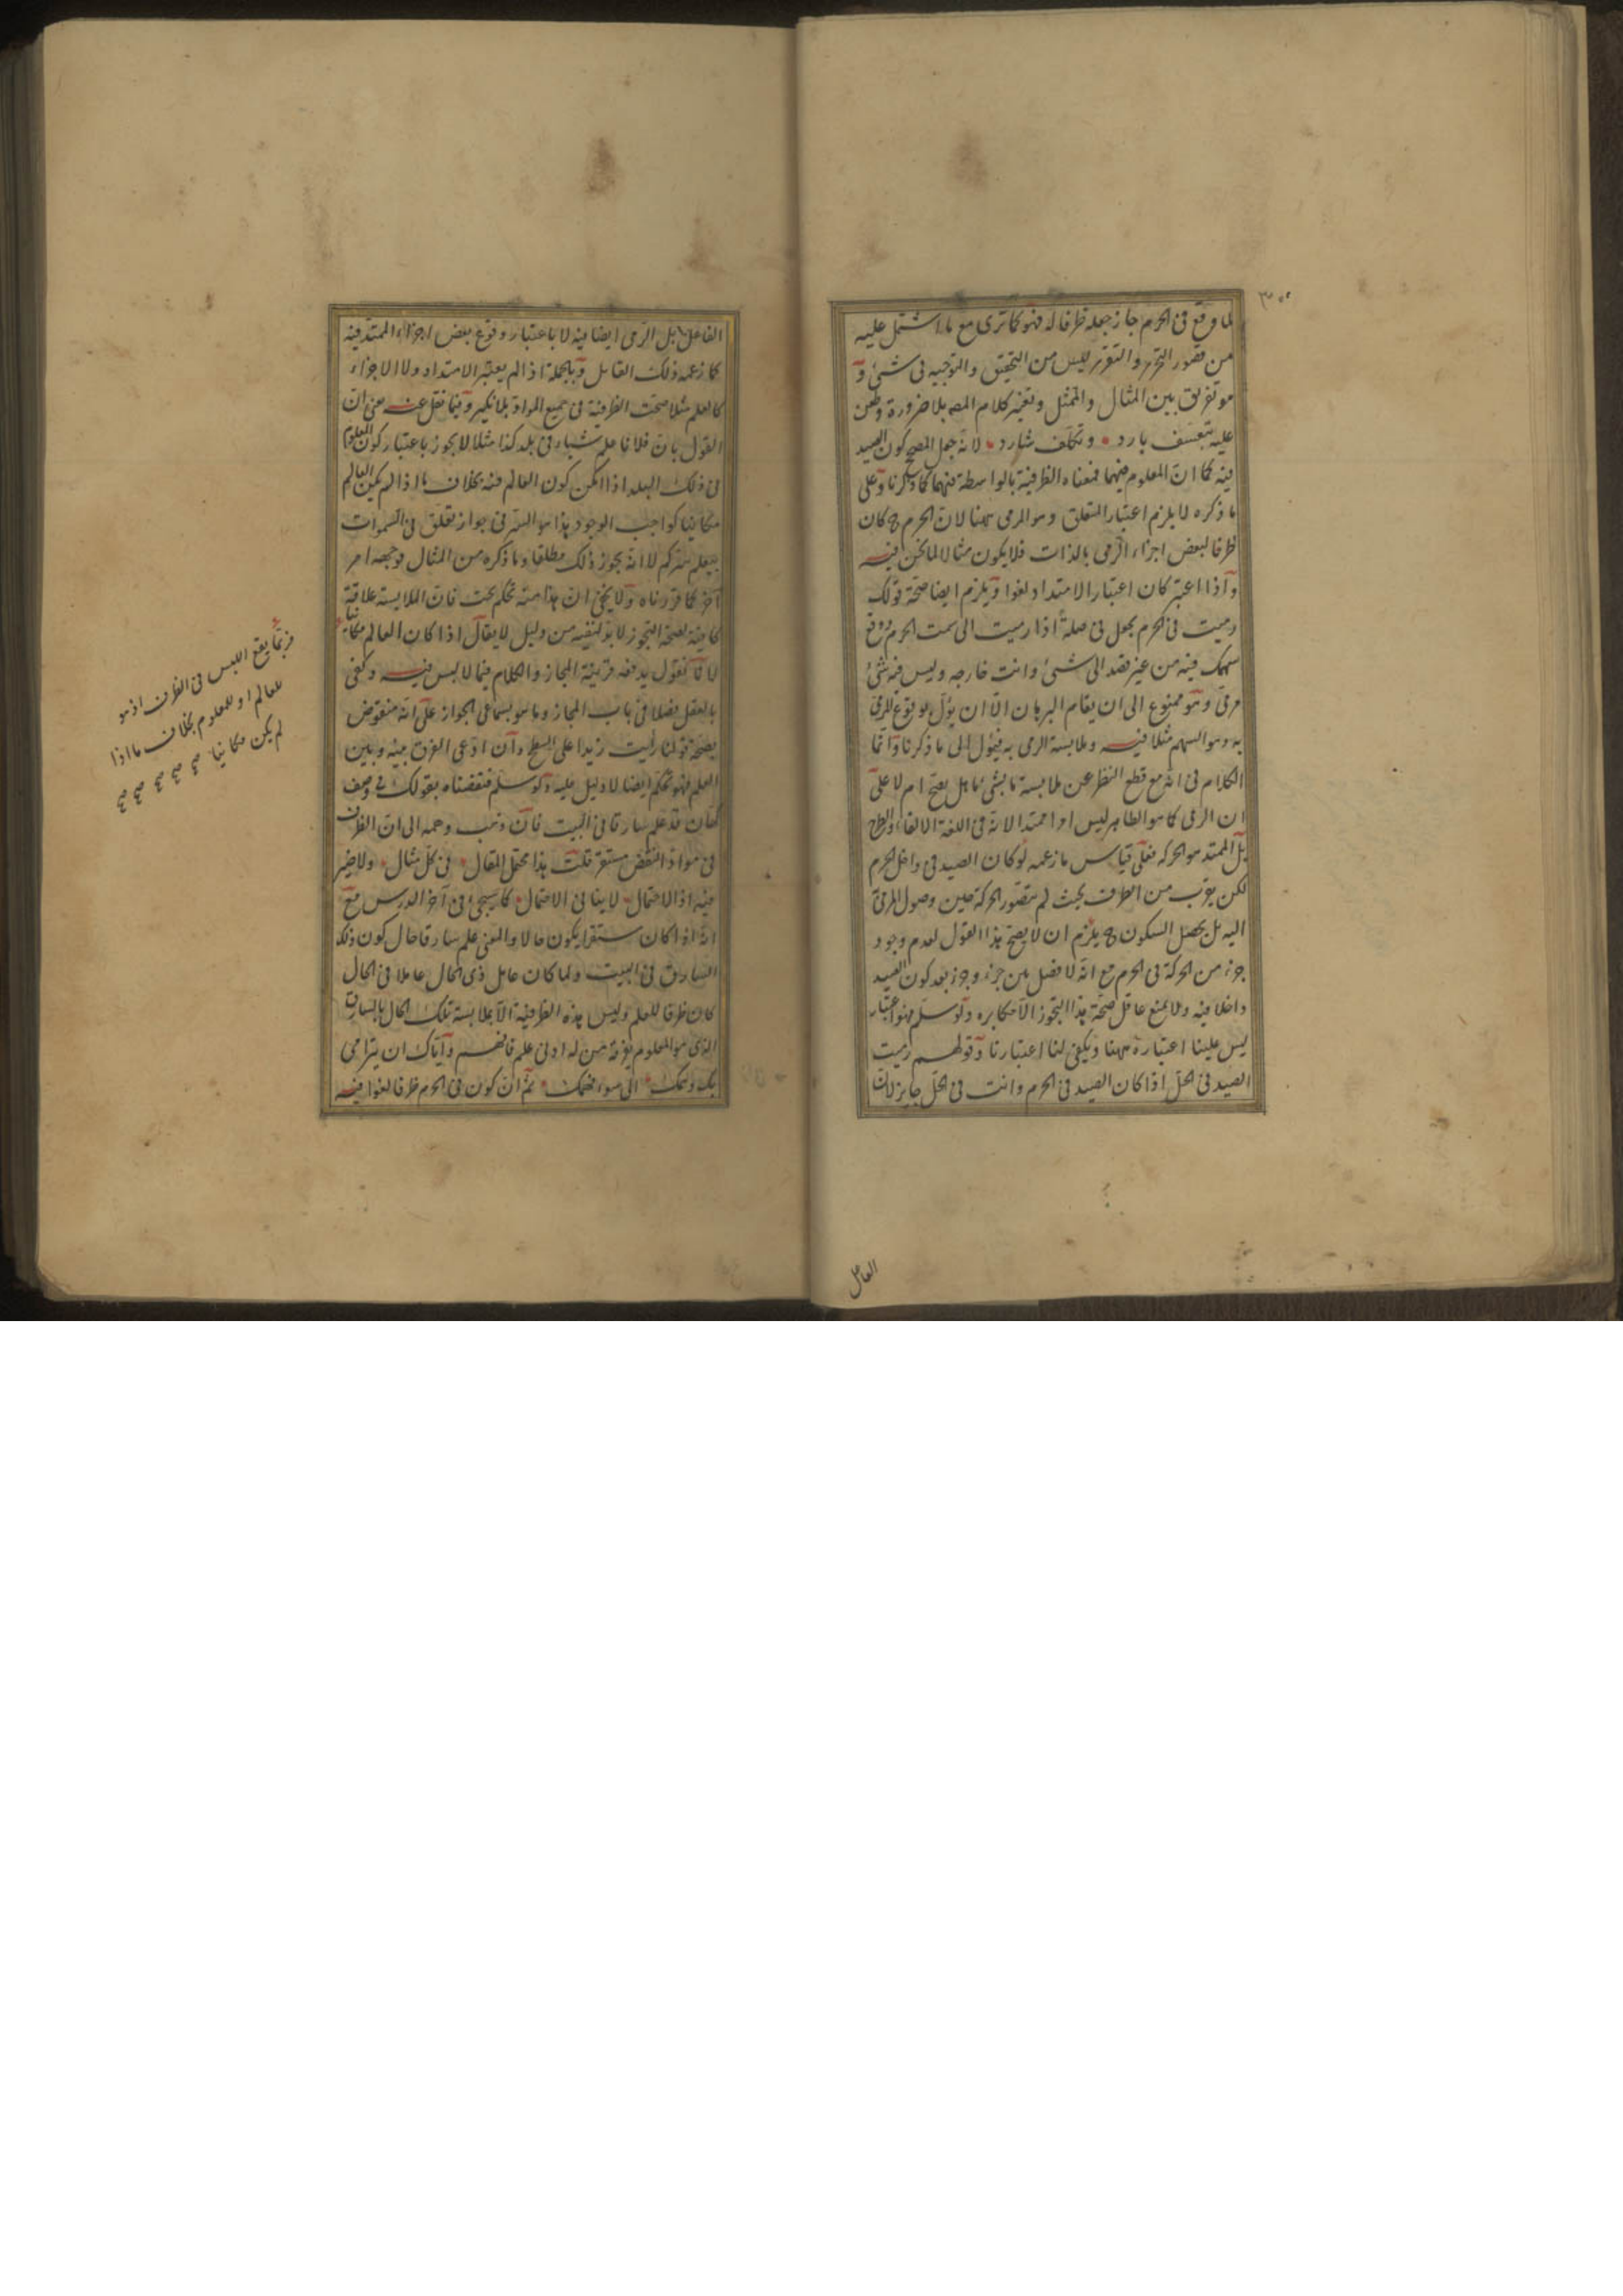 لما وقع فى الحرم جاز جعله ظرفا له فهو كما ترى مع ما اشتمل عليه
من قصور التحرير والتقرير ليس من التحقيق والتوجيه فى شئ و
هو تفريق بين المثال والممثل وتغيير كلام المصه بلا ضرورة وطعن
عليه بتعسف بارد وتكلف شارد لانه جعل المصحح كون الصيد
فيه كما ان المعلوم فيهما فمعناه الظرفية بالواسطة فيهما كما ذكرنا وعلى
ما ذكره لا يلزم اعتبار المتعلق وهو المرمى ههنا لان الحرم ح كان
ظرفا لبعض اجزاء الرمى بالذات فلا يكون مثالا لما نحن فيه
واذا اعتبر كان اعتبار الامتداد لغوا ويلزم ايضا صحة قولك
رميت فى الحرم بجعل فى صلة اذا رميت الى سمت الحرم ووقع
سهمك فيه من غير قصد الى شئ وانت خارجه وليس فيه شئ
مرمى وهو ممنوع الى ان يقام البرهان الا ان يؤل بوقوع المرمى
به وهو السهم مثلا فيه وملابسة الرمى به فيؤل الى ما ذكرنا وانما
الكلام فى انه مع قطع النظر عن ملابسة ما بشئ ما هل يصح ام لا على
ان الرمى كما هو الظاهر ليس امرا ممتدا لانه فى اللغة الالقاء والطرح
بل الممتد هو الحركة فعلى قياس ما زعمه لو كان الصيد فى داخل الحرم
لكن بقرب من الطرف بحيث لم يتصور الحركة حين وصول المرمى
اليه بل يحصل السكون ح يلزم ان لا يصح هذا القول لعدم وجود
جزء من الحركة فى الحرم مع انه لا فصل بين جزء وجزء بعد كون الصيد
داخلا فيه ولا يمنع عاقل صحة هذا التجوز الا مكابره ولو سلم فهو اعتبار
ليس علينا اعتباره ههنا ويكفى لنا اعتبارنا وقولهم رميت
الصيد فى الحل اذا كان الصيد فى الحرم وانت فى الحل جايز لان
الفاعل بل الرمى ايضا فيه لا باعتبار وقوع بعض اجزاء الممتد فيه
كما زعمه ذلك القايل وبالجملة اذا لم يعتبر الامتداد ولا الاجزاء
كالعلم مثلا صحت الظرفية فى جميع المواد بلا نكير وفيما نقل عنه معنى ان
القول بان فلانا علم شيا فى بلد كذا مثلا لا يجوز باعتبار كون المعلوم
فى ذلك البلد اذا امكن كون العالم فيه بخلاف ما اذا لم يكن العالم
مكانيا كواجب الوجود هذا هو السر فى جواز تعلق فى السموات
بيعلم سركم لا انه يجوز ذلك مطلقا وما ذكره من المثال فوجهه امر
آخر كما قررناه ولا يخفى ان هذا منه تحكم بحت فان الملابسة علاقة
كافية لصحة التجوز لا بد لنفيه من دليل لا يقال اذا كان العالم مكانيا
لانا نقول يدفعه قرينة المجاز والكلام فيما لا لبس فيه وكفى
بالعقل فضلا فى باب المجاز وما هو بسماعى الجواز على انه منقوض
بصحة قولنا رأيت زيدا على السطح وان ادعى الفرق بينه وبين
العلم فهو تحكم ايضا لا دليل عليه ولو سلم فنقضناه بقولك فى وصف
كهان قد علم سارقا فى البيت فان ذهب وهمه الى ان الظرف
فى مواد النقض مستقر قلت هذا محتمل المقال فى كل مثال ولا ضير
فيه اذ الاحتمال لا ينافى الاحتمال كما سيجئ فى آخر الدرس مع
انه اذا كان مستقرا يكون حالا والمعنى علم سارقا حال كون ذلك
السارق فى البيت ولما كان عامل ذى الحال عاملا فى الحال
كان ظرفا للعلم وليس هذه الظرفية الا بملابسة تلك الحال بالسارق
الذى هو المعلوم يعرفه من له ادنى علم فافهم واياك ان يترامى
بك وهمك الى سوء فهمك ثم ان كون فى الحرم ظرفا لغوا فيه
فربما يقع اللبس فى الظرف اذ هو
للعالم او للمعلوم بخلاف ما اذا
لم يكن مكانيا صح صح صح صح صح
الفاعل